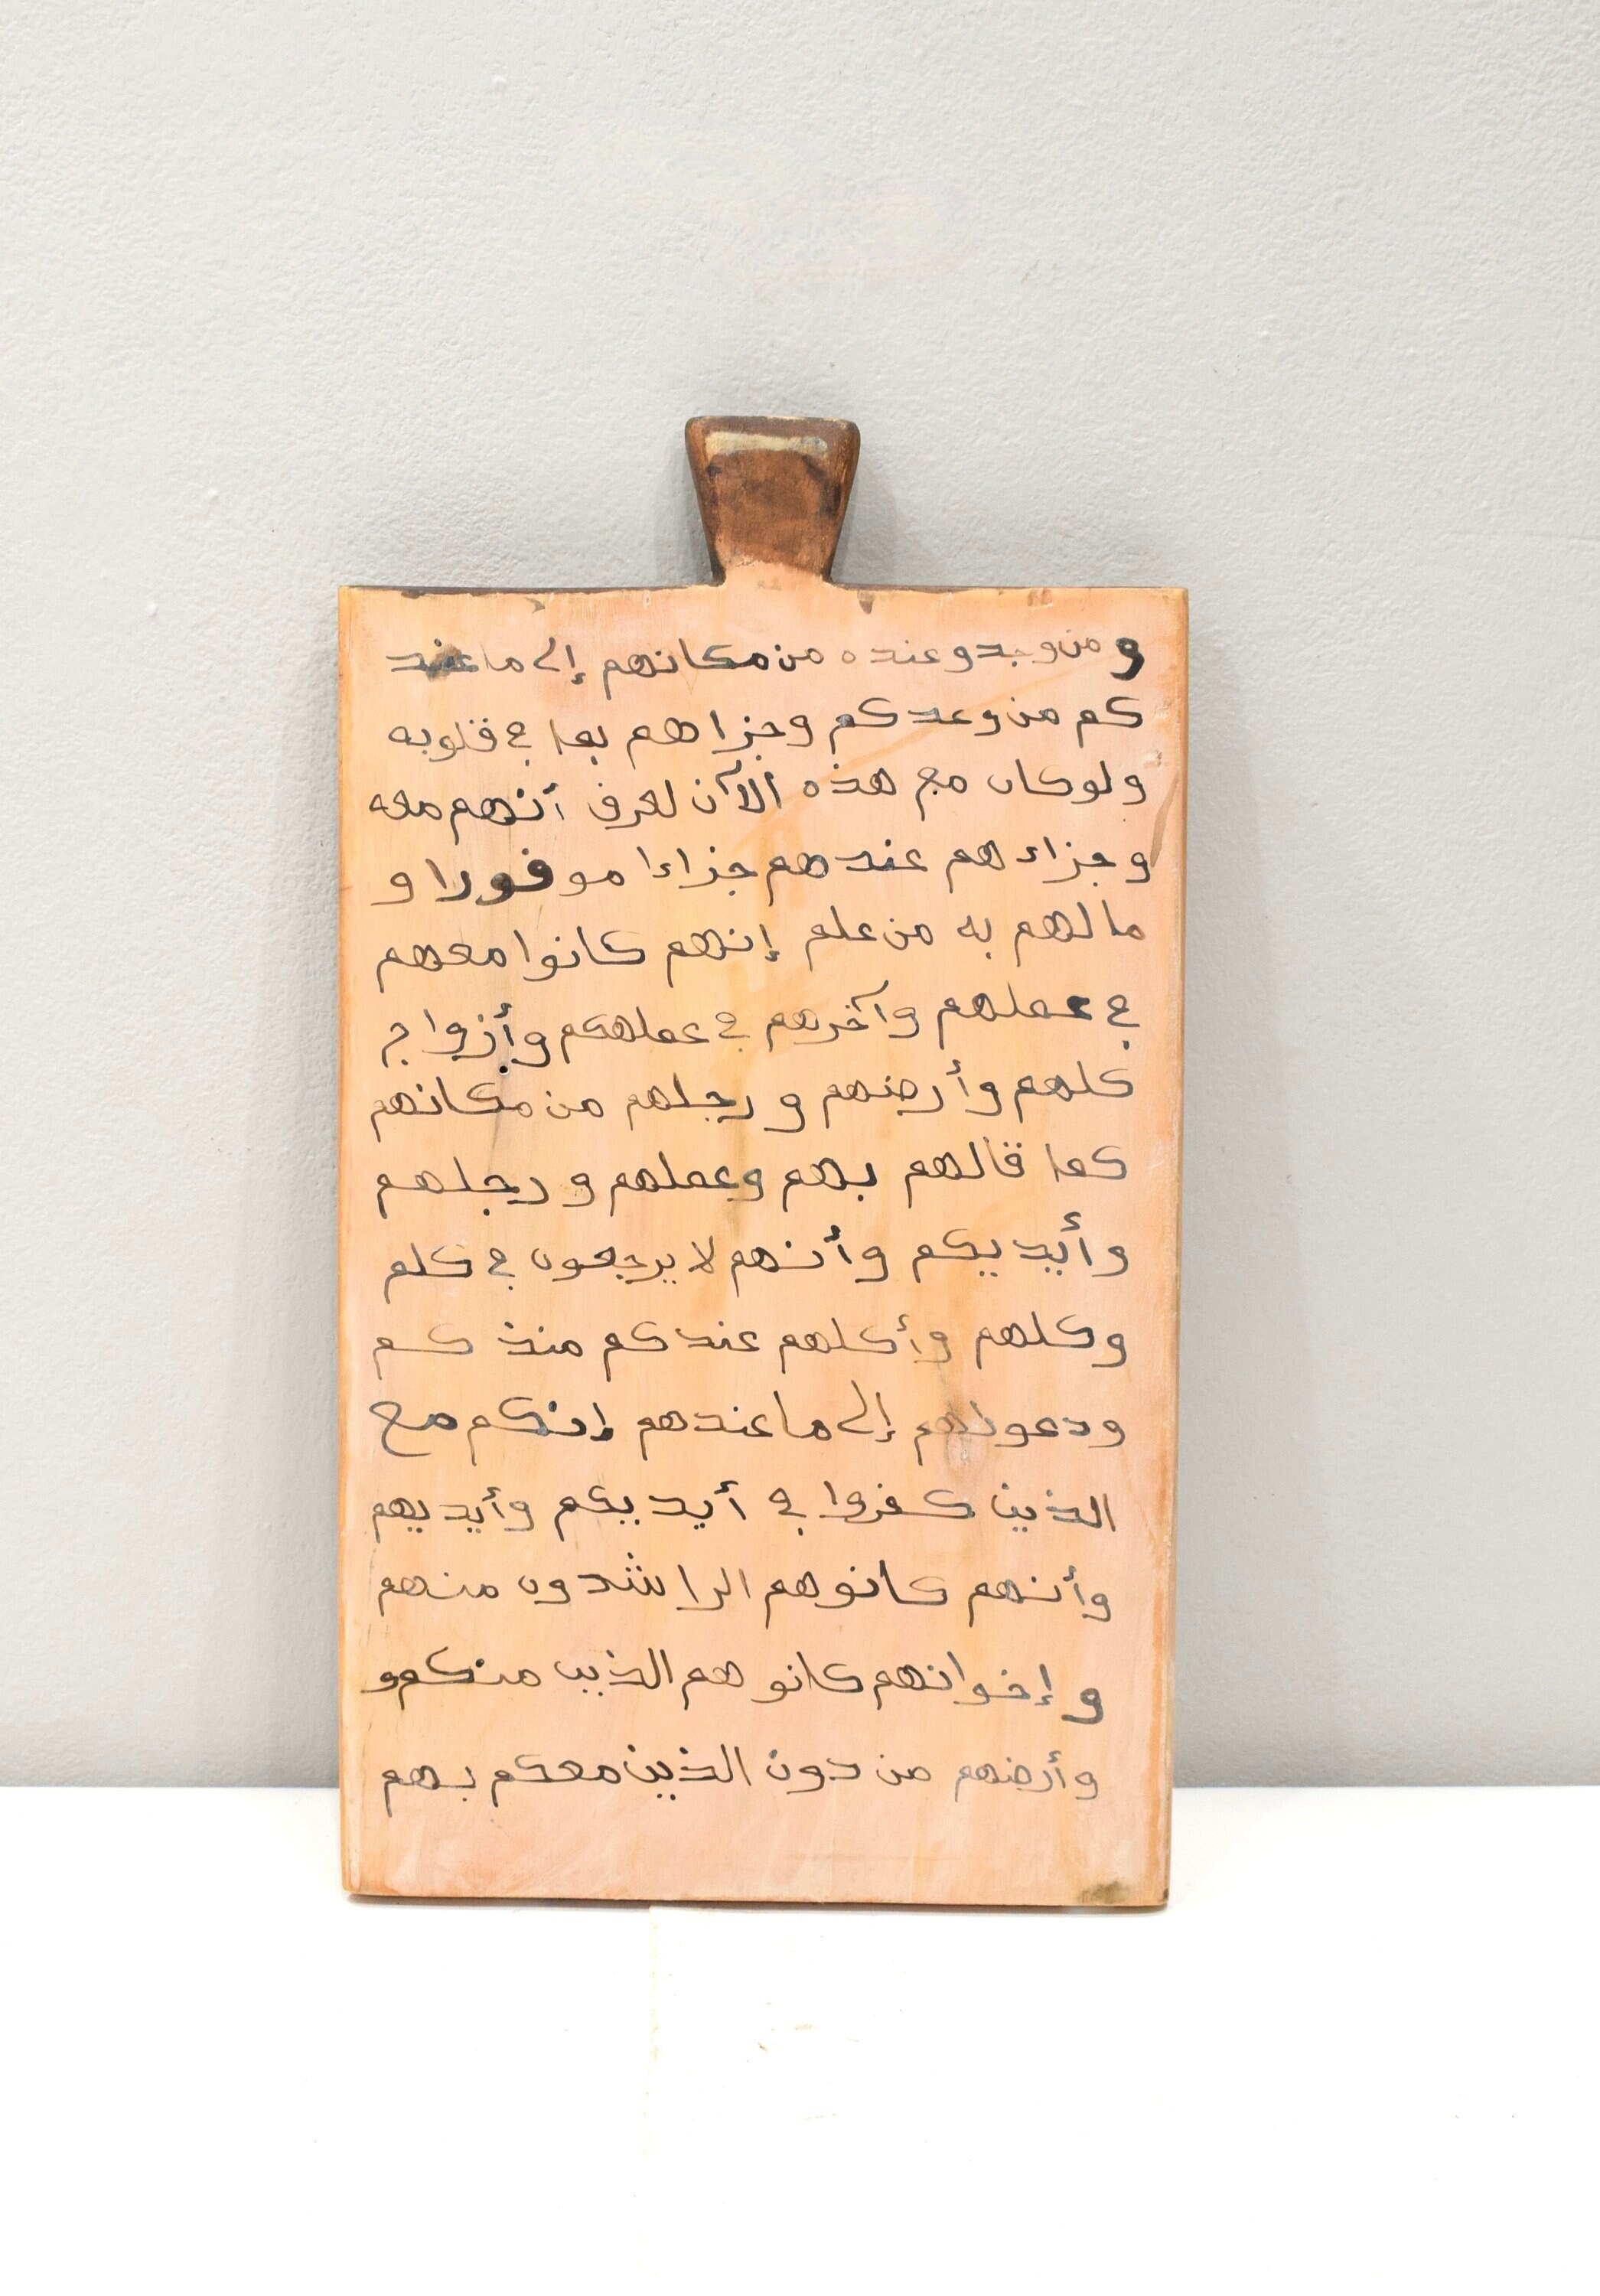 و من وجدو عنده من مكانهم إلى ما عند
كم من وعدكم وجزاهم بما في قلوبه
ولو كان مع هذه الآن لعرف أنهم معه
وجزاء هم عندهم جزاءا موفورا و
ما لهم به من علم إنهم كانوا معهم
في عملهم وآخرهم في عملهكم وأزواج
كلهم وأرضهم ورجلهم من مكانهم
كما قالهم بهم وعملهم ورجلهم
وأيديكم وأنهم لا يرجعون في كلم
وكلهم وأكلهم عندكم منذ كم
ودعواهم إلى ما عندهم إنكم مع
الذين كفروا في أيديكم وأيديهم
وأنهم كانوهم الراشدون منهم
وإخوانهم كانو هم الذين منكم و
وأرضهم من دون الذين معكم بهم